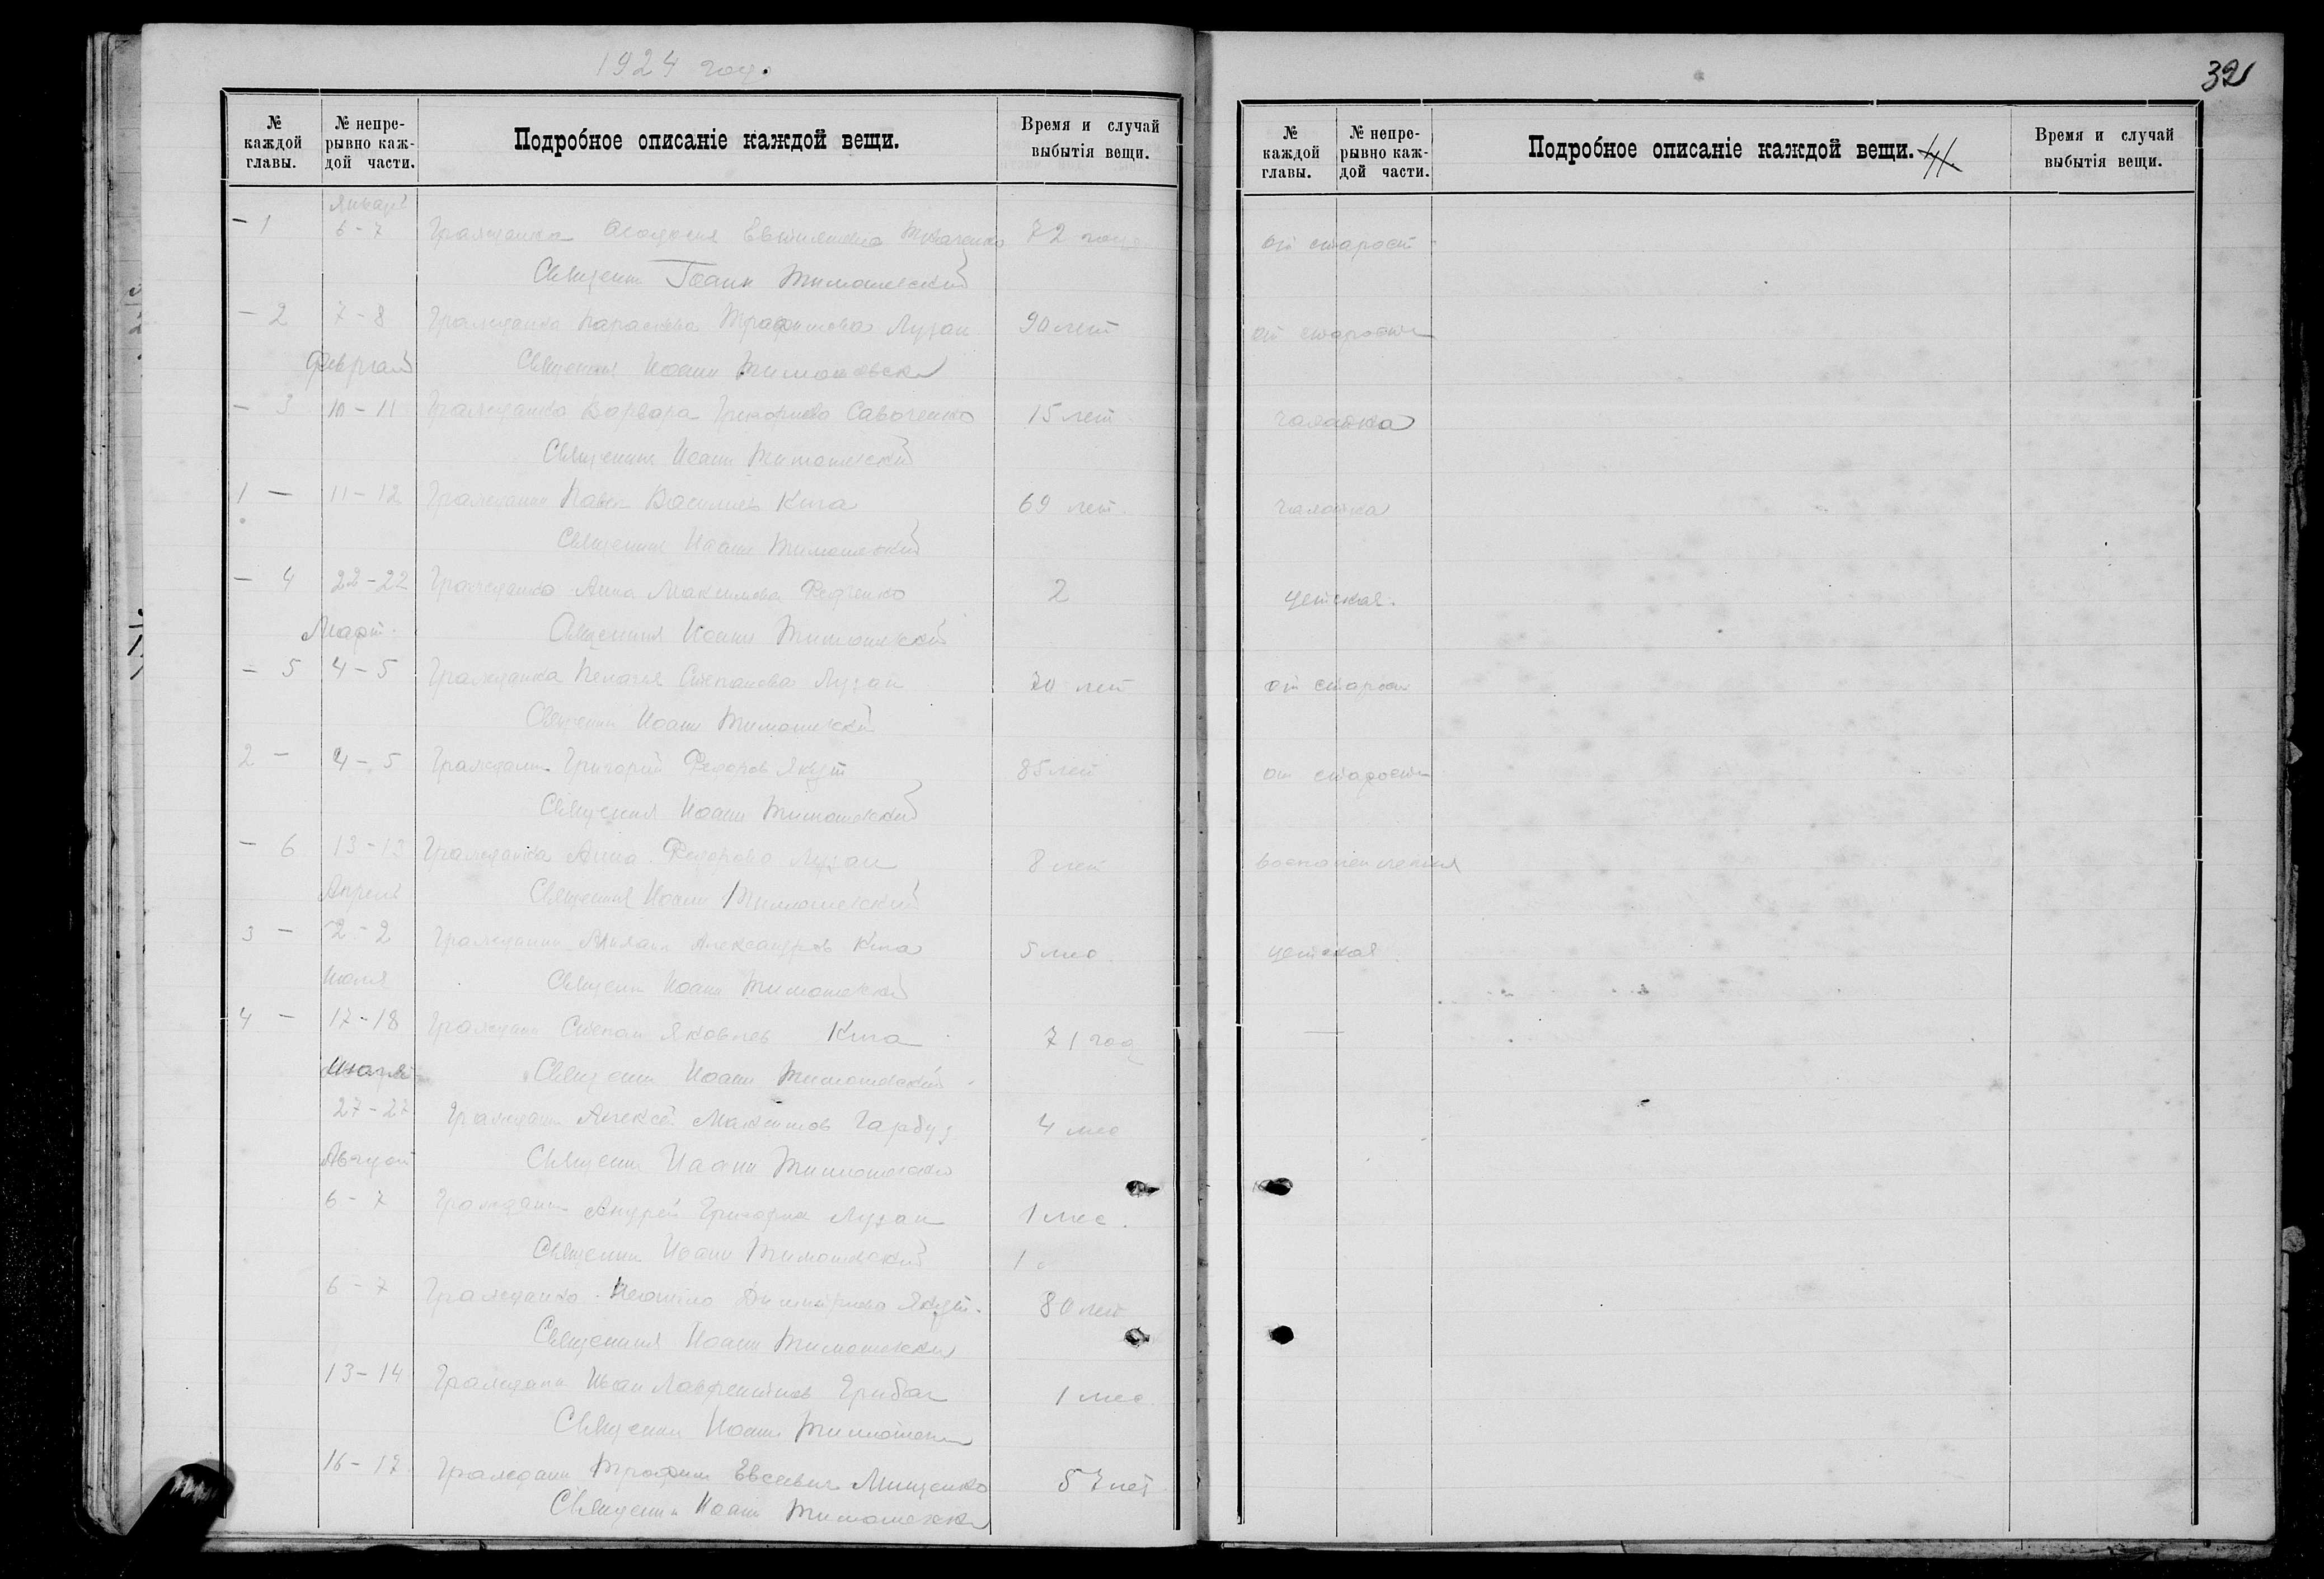 1924 год.
32
№ каждой главы.
№ непрерывно каждой части.
Подробное описаніе каждой вещи.
Время и случай выбытія вещи.
№ каждой главы.
№ непрерывно каждой части.
Подробное описаніе каждой вещи. 41.
Время и случай выбытія вещи.
Январь
— 1 6-7 Гражданка Ткаченко 72 года от старост
Священник Іоанн Тимошевский
— 2 7-8 Гражданка Параскева Трофимова Лузан 90 лет от старости
Февраль Священник Иоанн Тимошевский
— 3 10-11 Гражданка Варвара Григориева Савченко 15 лет
Священник Иоанн Тимошевский
1 — 11-12 Гражданин Павел Васильев Кива 69 лет
Священник Иоанн Тимошевский
— 4 22-22 Гражданка Анна Максимова Федченко 2 детская.
Март Священник Иоанн Тимошевский
— 5 4-5 Гражданка Пелагея Степанова Лузан 70 лет от старости
Священник Иоанн Тимошевский
2 — 4-5 Гражданин Григорий Федоров Якут 85 лет от старости
Священник Иоанн Тимошевский
— 6 13-13 Гражданка Анна Федорова Лузан 8 лет
Апрель Священник Иоанн Тимошевский
3 — 2-2 Гражданин Александров Кива 5 мес. детская
Июля Священник Иоанн Тимошевский
4 — 17-18 Гражданин Степан Яковлев Кива 71 год —
Священник Иоанн Тимошевский
27-27 Гражданин Алексей Максимов Гарбуз 4 мес
Август Священник Иоанн Тимошевский
6-7 Гражданин Андрей Лузан 1 мес.
Священник Иоанн Тимошевский
6-7 Гражданка Димитриева Якут 80 лет
Священник Иоанн Тимошевский
13-14 Гражданин Иван Лаврентиев 1 мес
Священник Иоанн Тимошевский
16-17 Гражданин Трофим Евсевич Мищенко 57 лет
Священник Иоанн Тимошевский